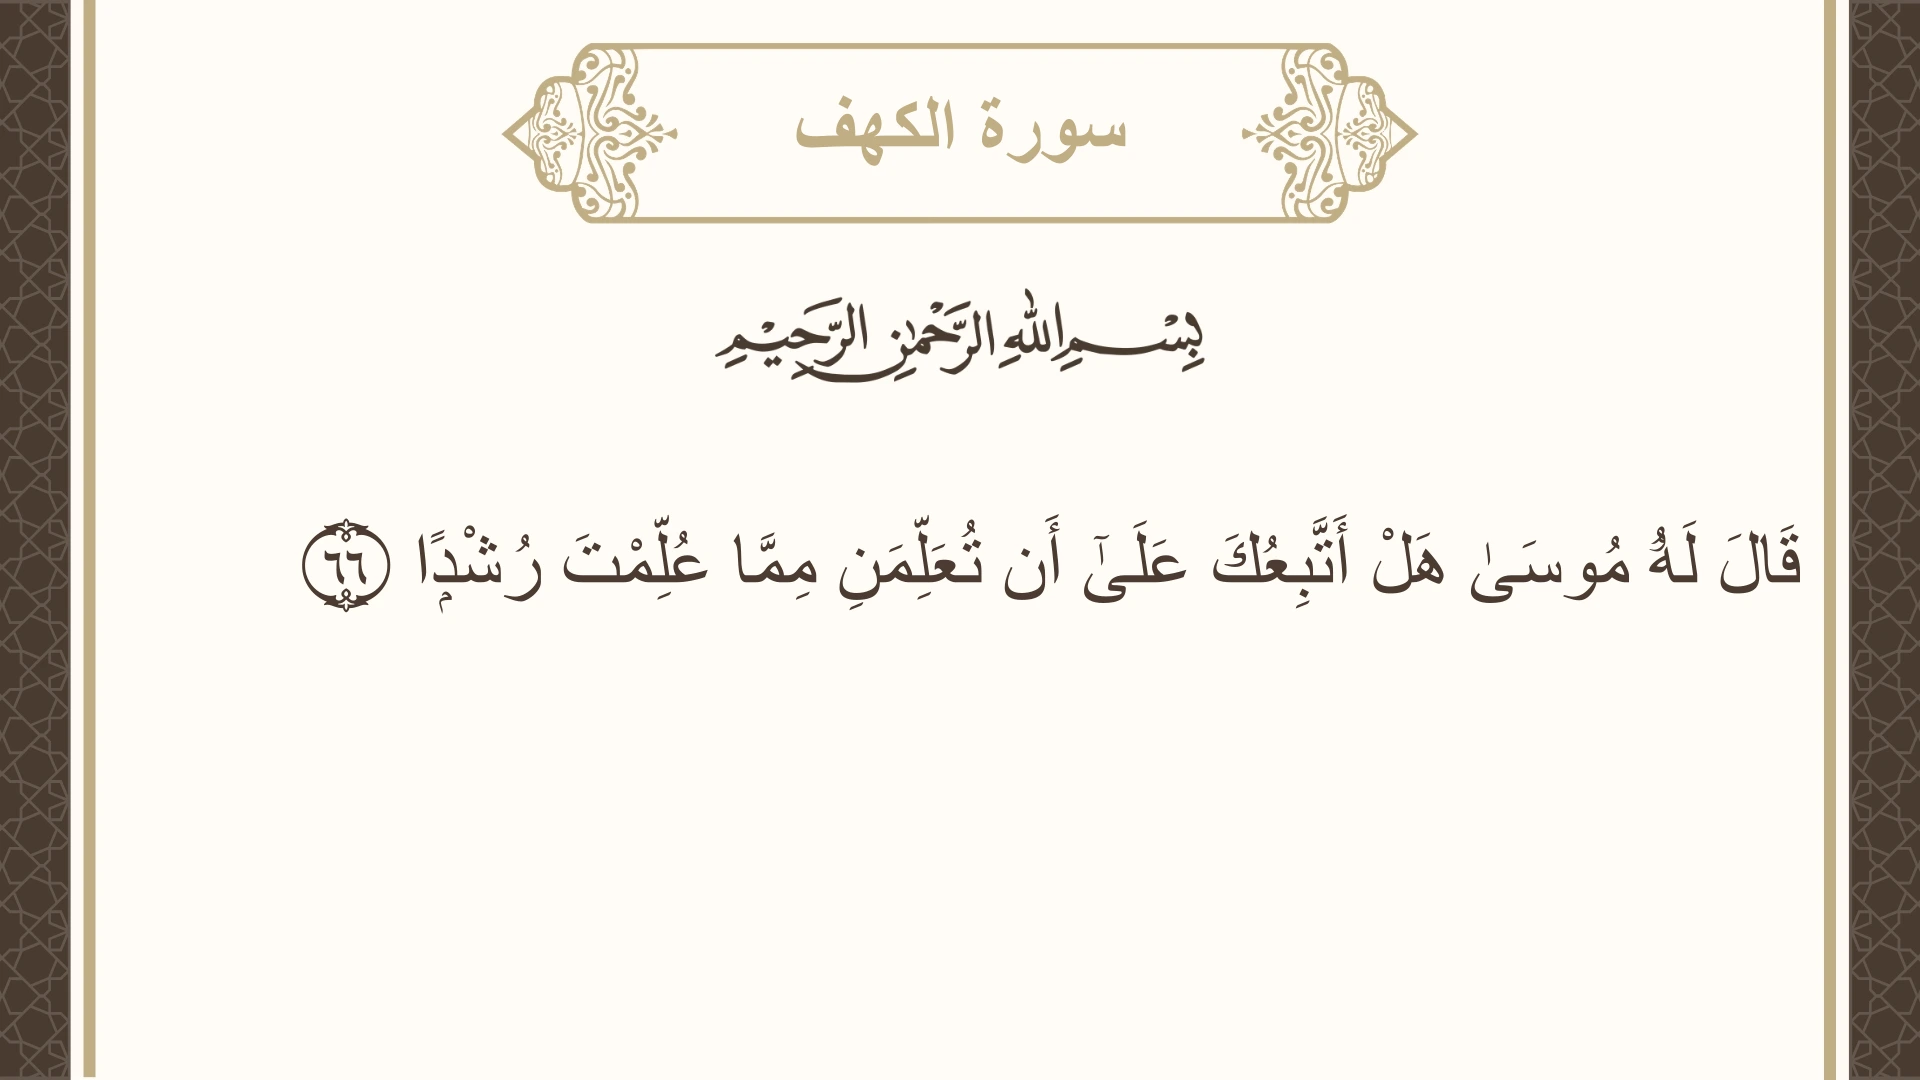 سورة الكهف
بِسْمِ اللهِ الرَّحْمٰنِ الرَّحِيْمِ
قَالَ لَهُۥ مُوسَىٰ هَلْ أَتَّبِعُكَ عَلَىٰٓ أَن تُعَلِّمَنِ مِمَّا عُلِّمْتَ رُشْدًۭا ٦٦